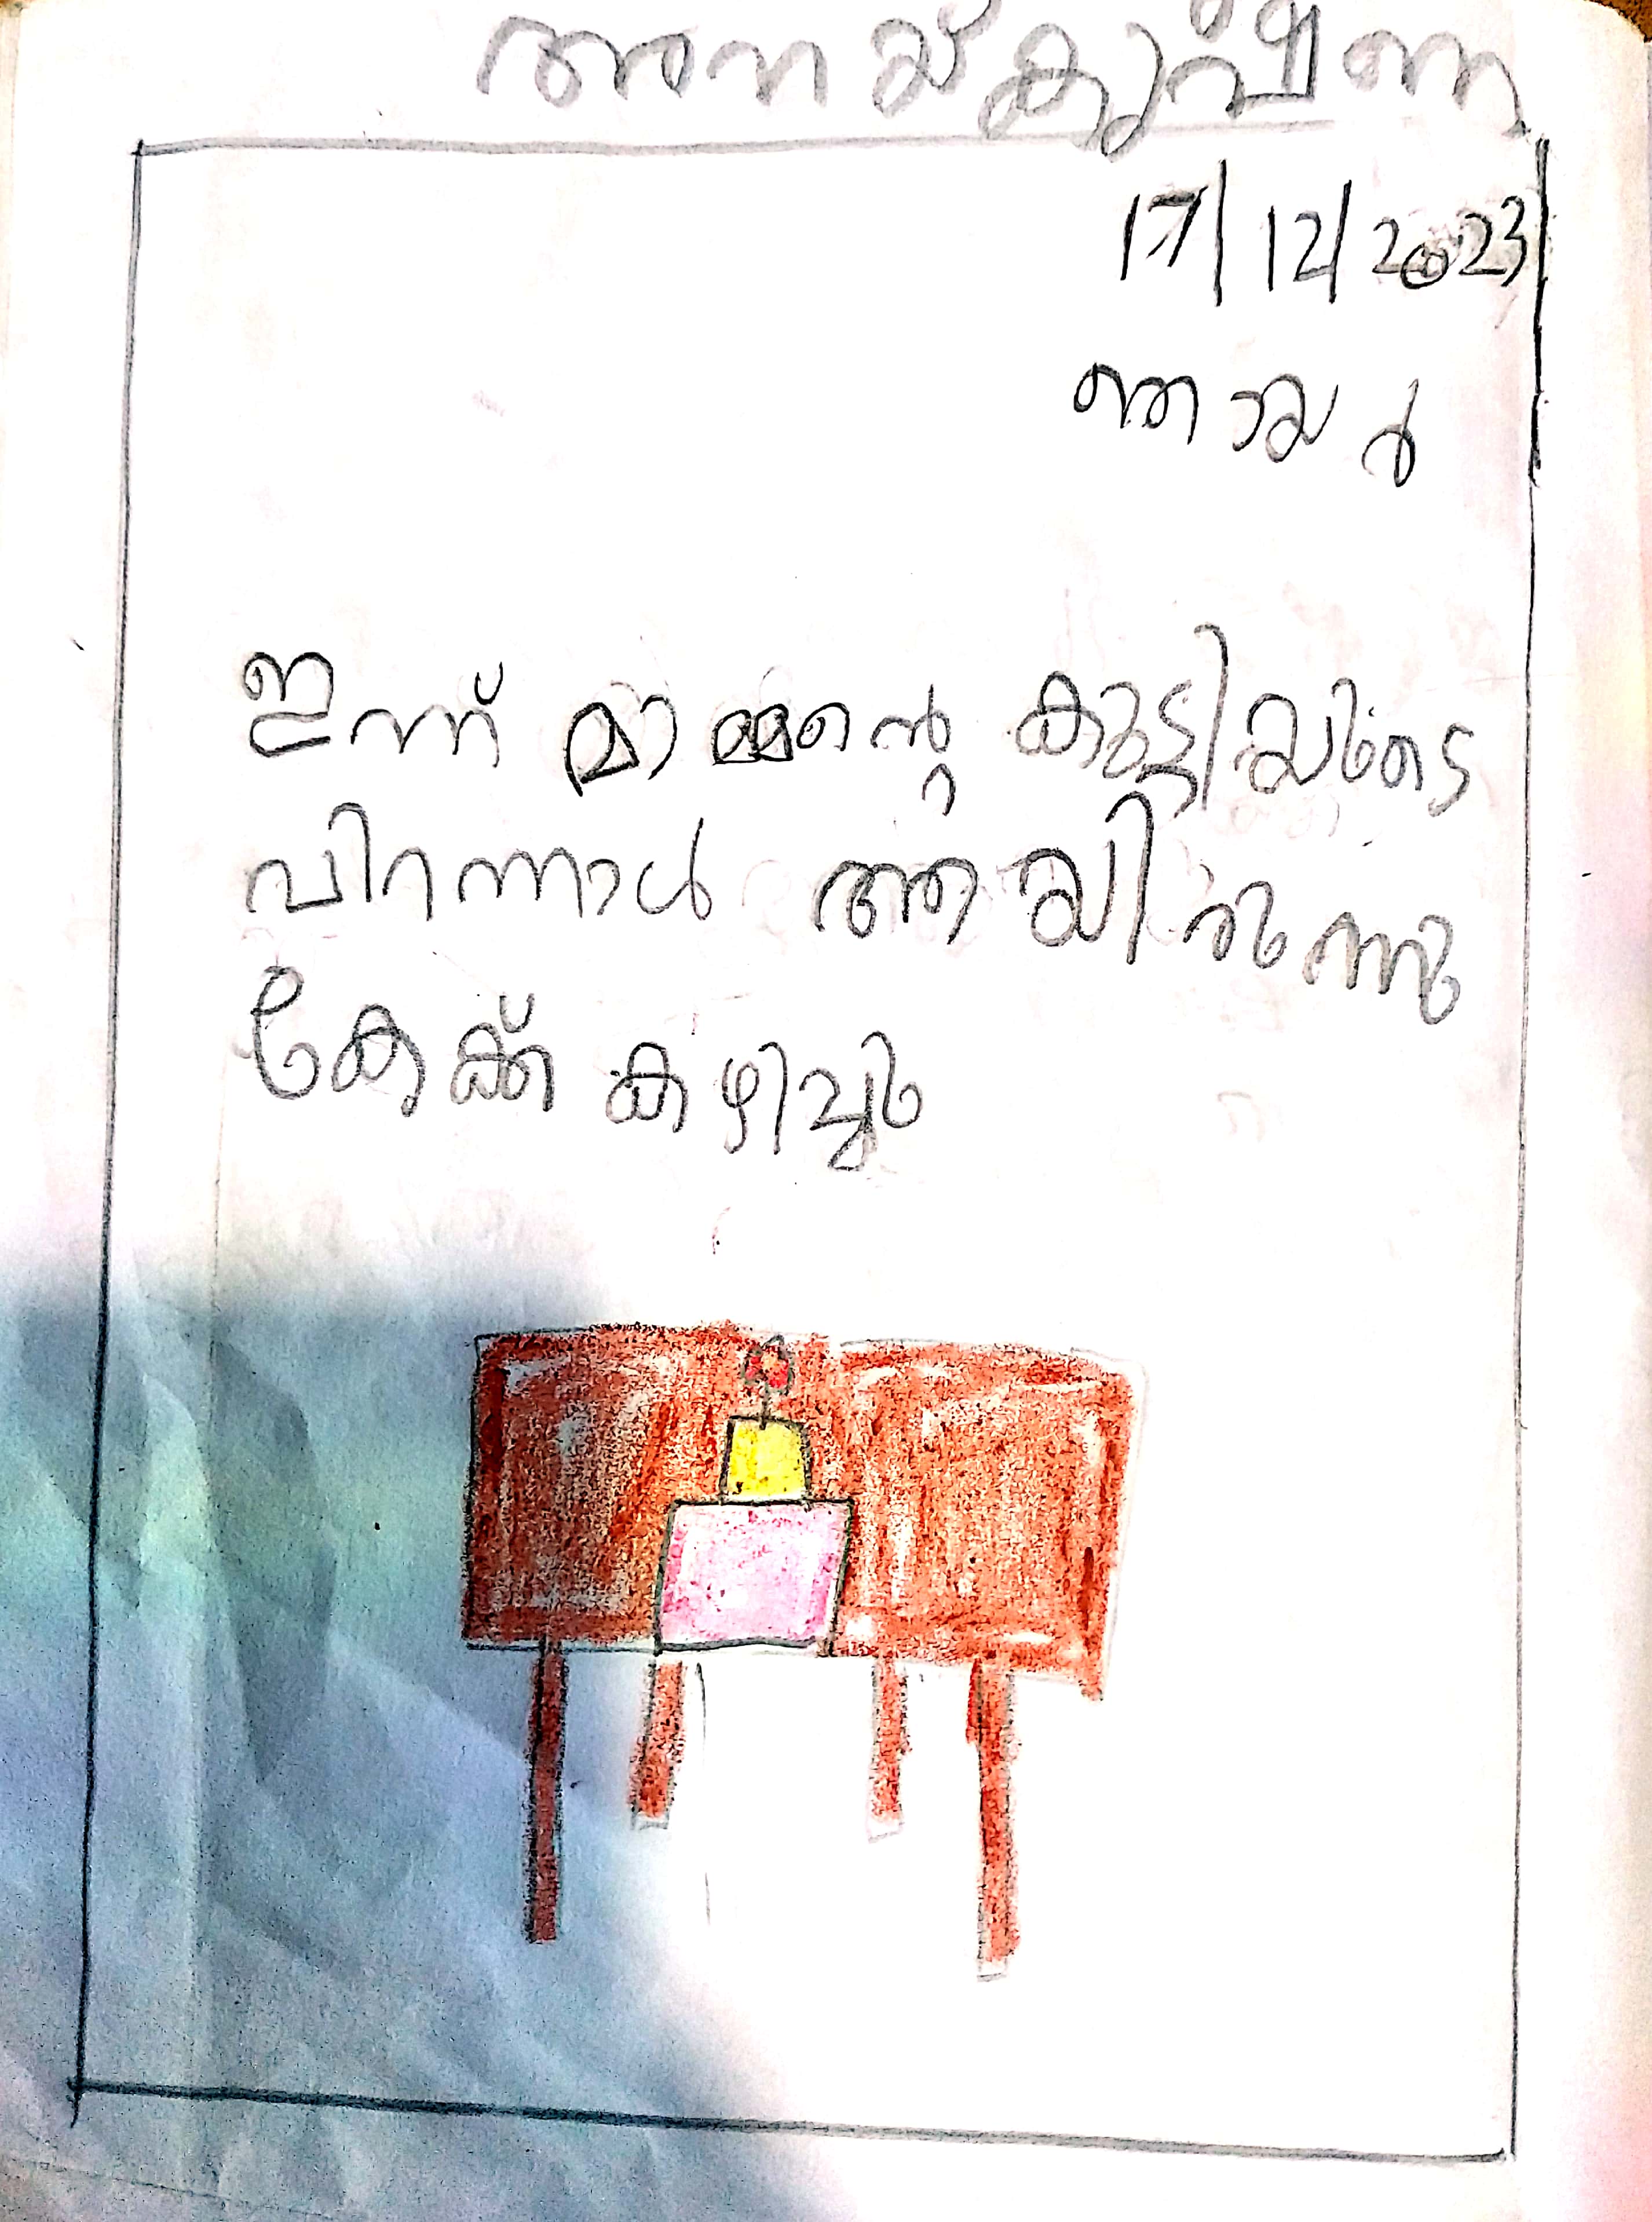 അനയ്കൃഷ്ണ
17/12/2023
ഞായർ
ഇന്ന് മാമ്മന്റെ കുട്ടിയുടെ
പിറന്നാൾ ആയിരുന്നു
കേക്ക് കഴിച്ചു